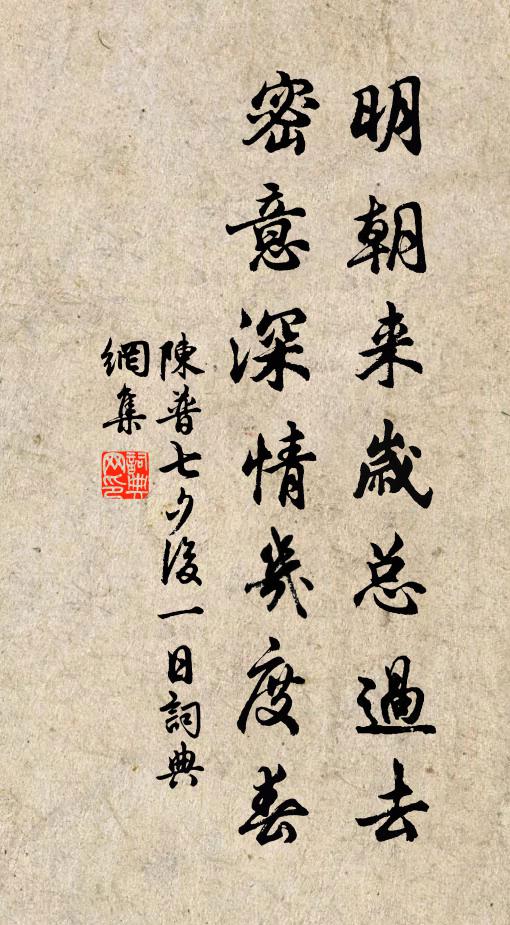 明朝来歲总過去
密意深情幾度春
陳普七夕後一日詞典
網集
詞典
网印